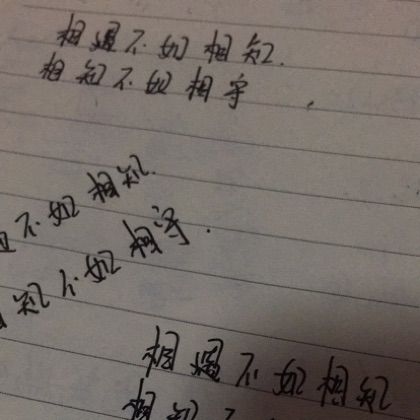 相遇不如相知.
相知不如相守.
不如相知.
知不如相守.
相遇不如相知
相知不